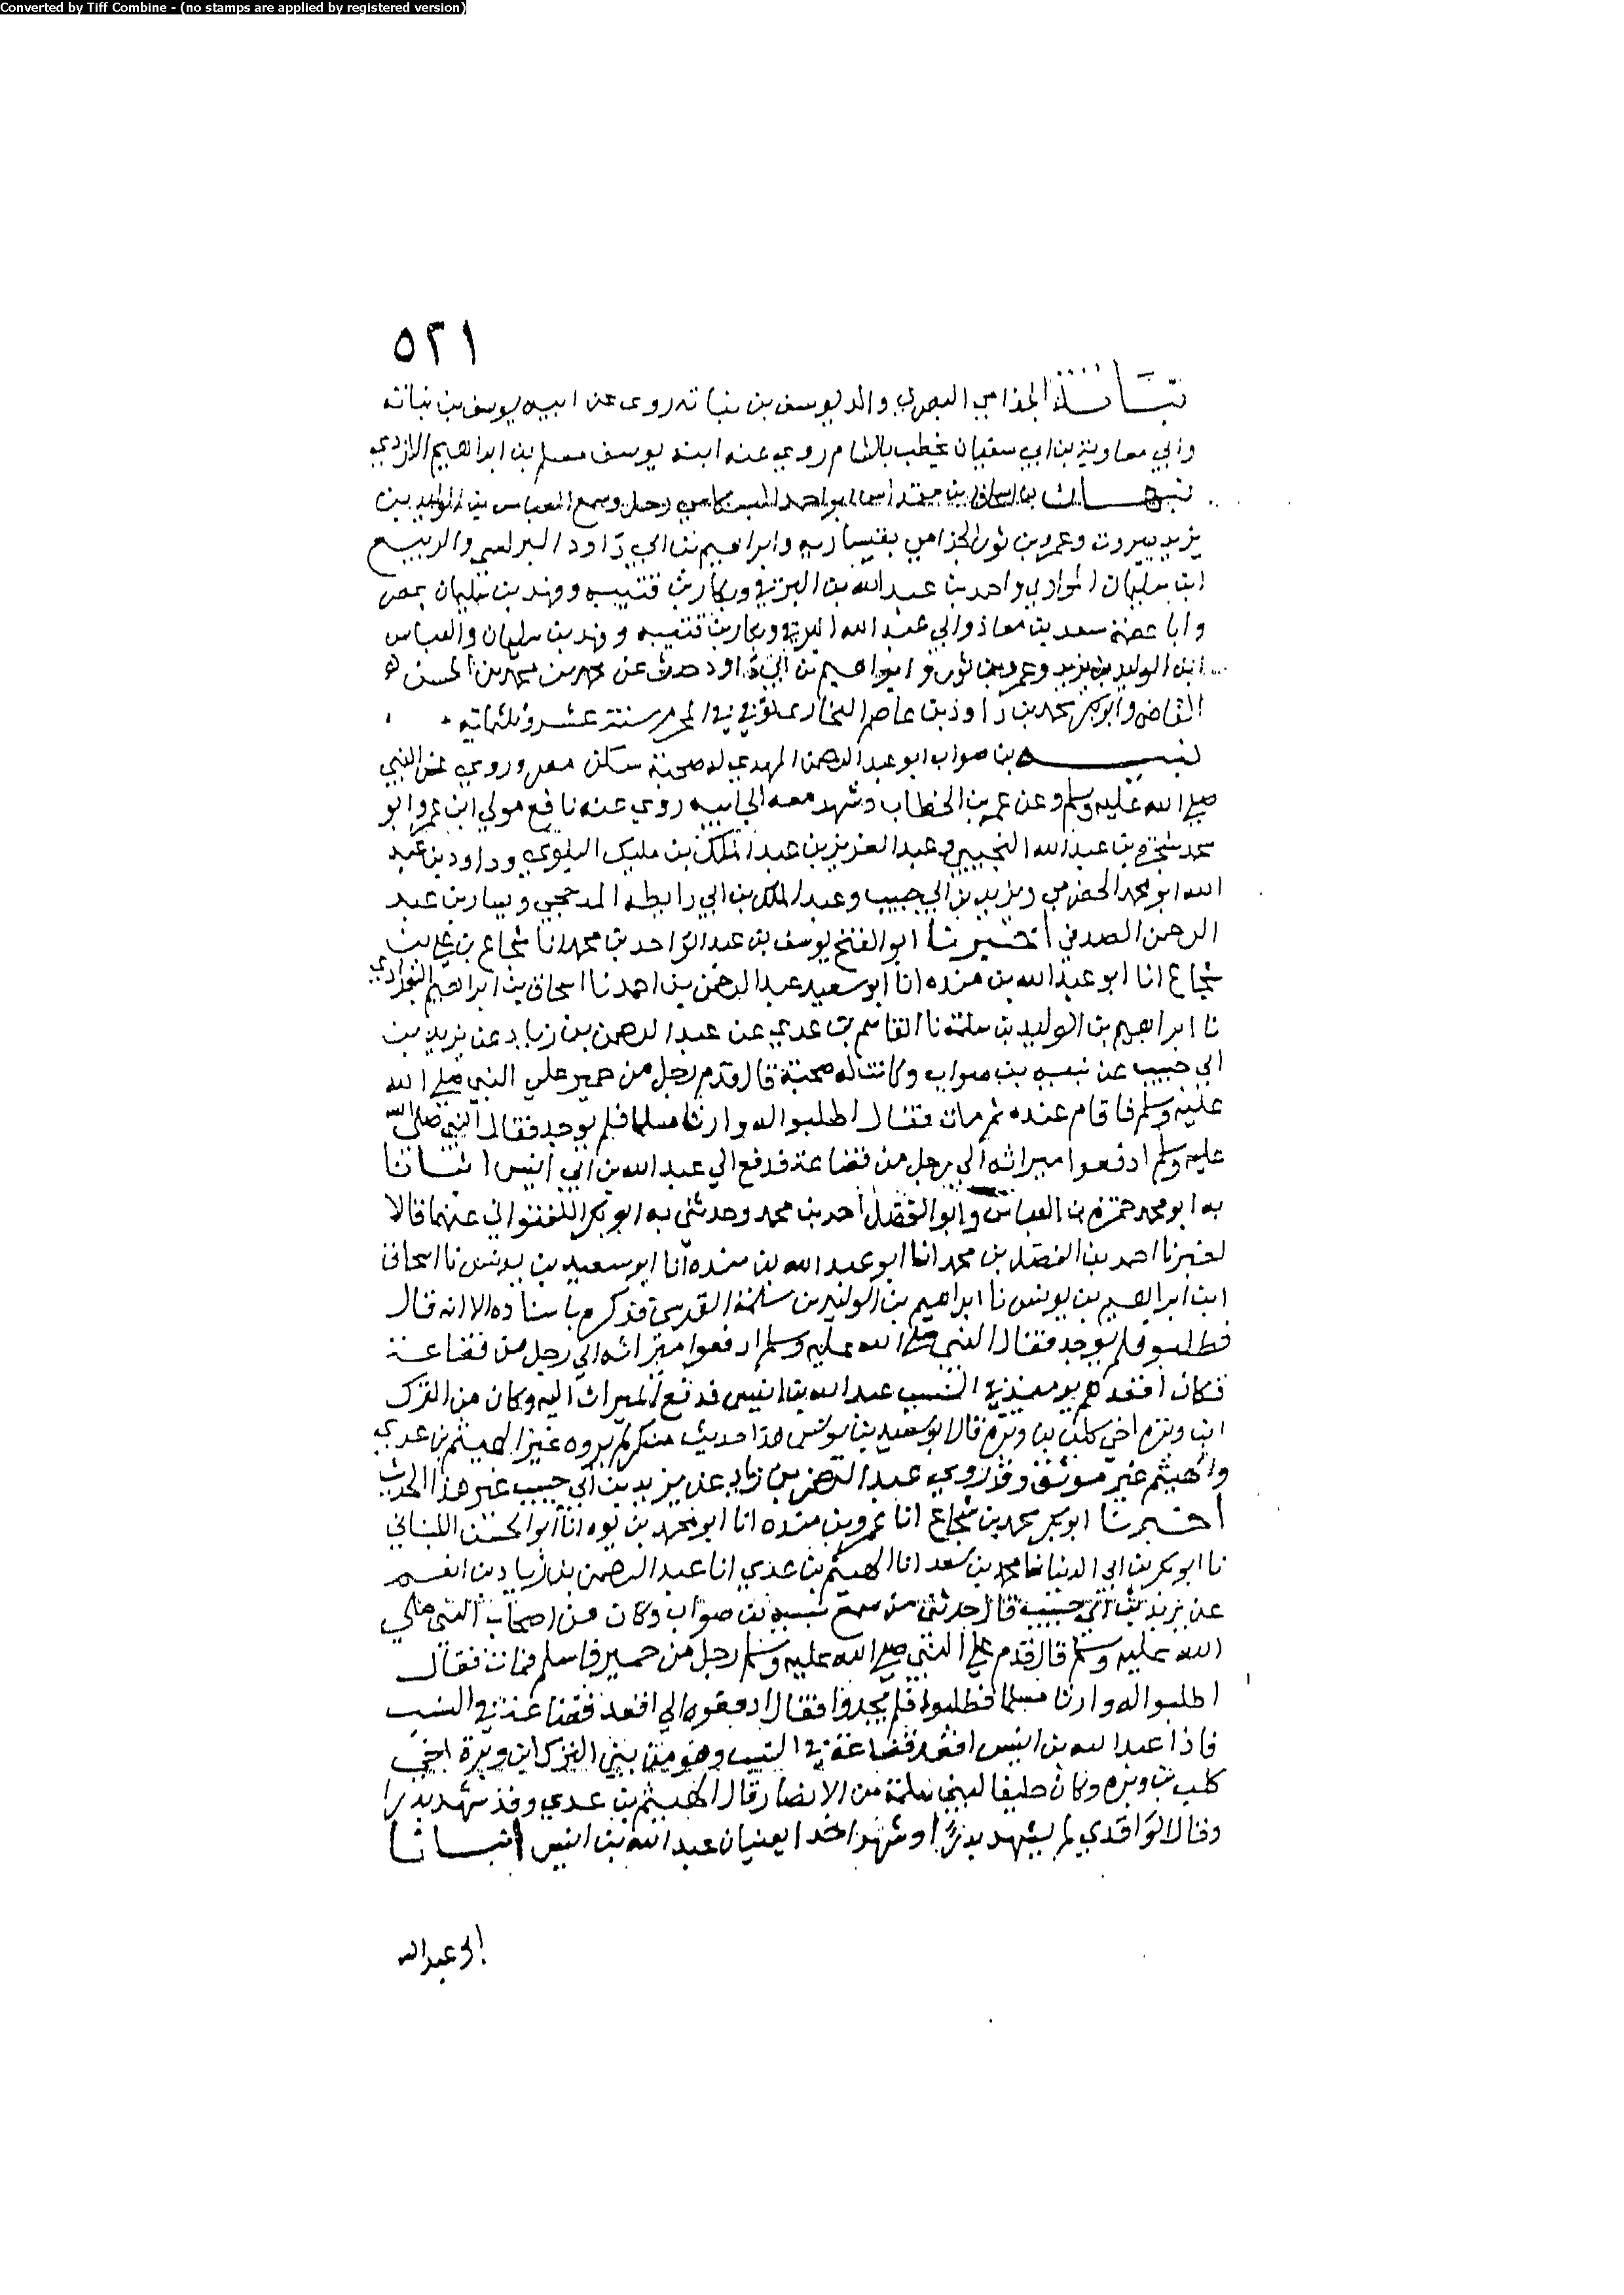 Converted by Tiff Combine - (no stamps are applied by registered version)
٥٢١
نباتة الجذامي البصري والد يوسف بن نباته روى عن ابيه يوسف بن نباته
وابي معاوية بن ابي سفيان يخطب بالشام روي عنه ابنه يوسف مسلم بن ابراهيم الازدي
نبهان بن اسحاق بن ابو احمد رحل وسمع العباس بن الوليد بن
يزيد ببيروت وعمرو بن ثور الجذامي بقيساريه وابراهيم بن ابي داود البرلسي والربيع
ابن سليمان المرادي واحمد بن عبد الله بن البرقي وبكار بن قتيبه وفهد بن سليمان بمصر
وابا عصمة سعد بن معاذ وابي عبد الله البرقي وبكار بن قتيبه وفهد بن سليمان والعباس
ابن الوليد بن يزيد وعمرو بن ثور وابراهيم بن ابي داود حدث عن محمد بن محمد بن الحسن
القاضي وابو بكر محمد بن داود بن عاصم البخاري توفي في المحرم سنة عشر وثلثمائه
نبيه بن صواب ابو عبد الرحمن المهدي له صحبة سكن مصر وروي عن النبي
صلى الله عليه وسلم وعن عمر بن الخطاب وشهد معه الجابيه روي عنه نافع مولي ابن عمر وابو
بن عبد الله التجيبي وعبد العزيز بن عبد الملك بن مليك البلوي وداود بن عبد
الله ابو محمد الحضرمي ويزيد بن ابي حبيب وعبد الملك بن ابي رابطه المدحجي وسيار بن عبد
الرحمن الصدفي اخبرنا ابو الفتح يوسف بن عبد الواحد بن محمد انا شجاع بن علي بن
شجاع انا ابو عبد الله بن منده انا ابو سعيد عبد الرحمن بن احمد نا اسحاق بن ابراهيم البغدادي
نا ابراهيم بن الوليد بن سلمة نا القاسم بن عدي عن عبد الرحمن بن زياد عن يزيد بن
ابي حبيب عن نبيه بن صواب وكانت له صحبة قال قدم رجل من حمير علي النبي صلى الله
عليه وسلم فاقام عنده ثم مات فقال اطلبوا له وارثا مسلما فلم يوجد فقال النبي صلى الله
عليه وسلم ادفعوا ميراثه الي رجل من قضاعة فدفع الي عبد الله بن ابي انيس انبانا
به ابو محمد حمزة بن العباس وابو الفضل احمد بن محمد وحدثني به ابو بكر اللفتواني عنهما قالا
اخبرنا احمد بن الفضل بن محمد انا ابو عبد الله بن منده انا ابو سعيد بن يونس نا اسحاق
ابن ابراهيم بن يونس نا ابراهيم بن الوليد بن سلمة القدسي فذكره باسناده الا انه قال
فطلبو فلم يوجد فقال النبي صلى الله عليه وسلم ادفعوا ميراثه الي رجل من قضاعة
فكان اقعدهم يومئذ في النسب عبد الله بن انيس فدفع الميراث اليه وكان من الترك
ابن وبرة اخي كلب بن وبرة قال ابو سعيد بن يونس هذا حديث منكر لم يروه غير الهيثم بن عدي
والهيثم غير موثق وقد روي عبد الرحمن بن زياد عن يزيد بن ابي حبيب غير هذا الحديث
اخبرنا ابو بكر محمد بن شجاع انا عمرو بن منده انا ابو محمد بن يوه انا ابو الحسن اللبناني
نا ابو بكر بن ابي الدنيا نا محمد بن سعد انا الهيثم بن عدي انا عبد الرحمن بن زياد بن انعم
عن يزيد بن ابي حبيب قال حدثني من سمع نبيه بن صواب وكان من اصحاب النبي صلي
الله عليه وسلم قال قدم علي النبي صلى الله عليه وسلم رجل من حمير فاسلم فمات فقال
اطلبوا له وارثا مسلما فطلبوا فلم يجدوا فقال ادفعوه الي اقعد قضاعة في النسب
فاذا عبد الله بن انيس اقعد قضاعة في النسب وهو من بني الترك ابن وبرة اخي
كلب بن وبره وكان حليفا لبني سلمة من الانصار قال الهيثم بن عدي وقد شهد بدرا
وقال الواقدي لم يشهد بدرا وشهد احدا يعنيان عبد الله بن انيس انبانا
ابو عبد الله